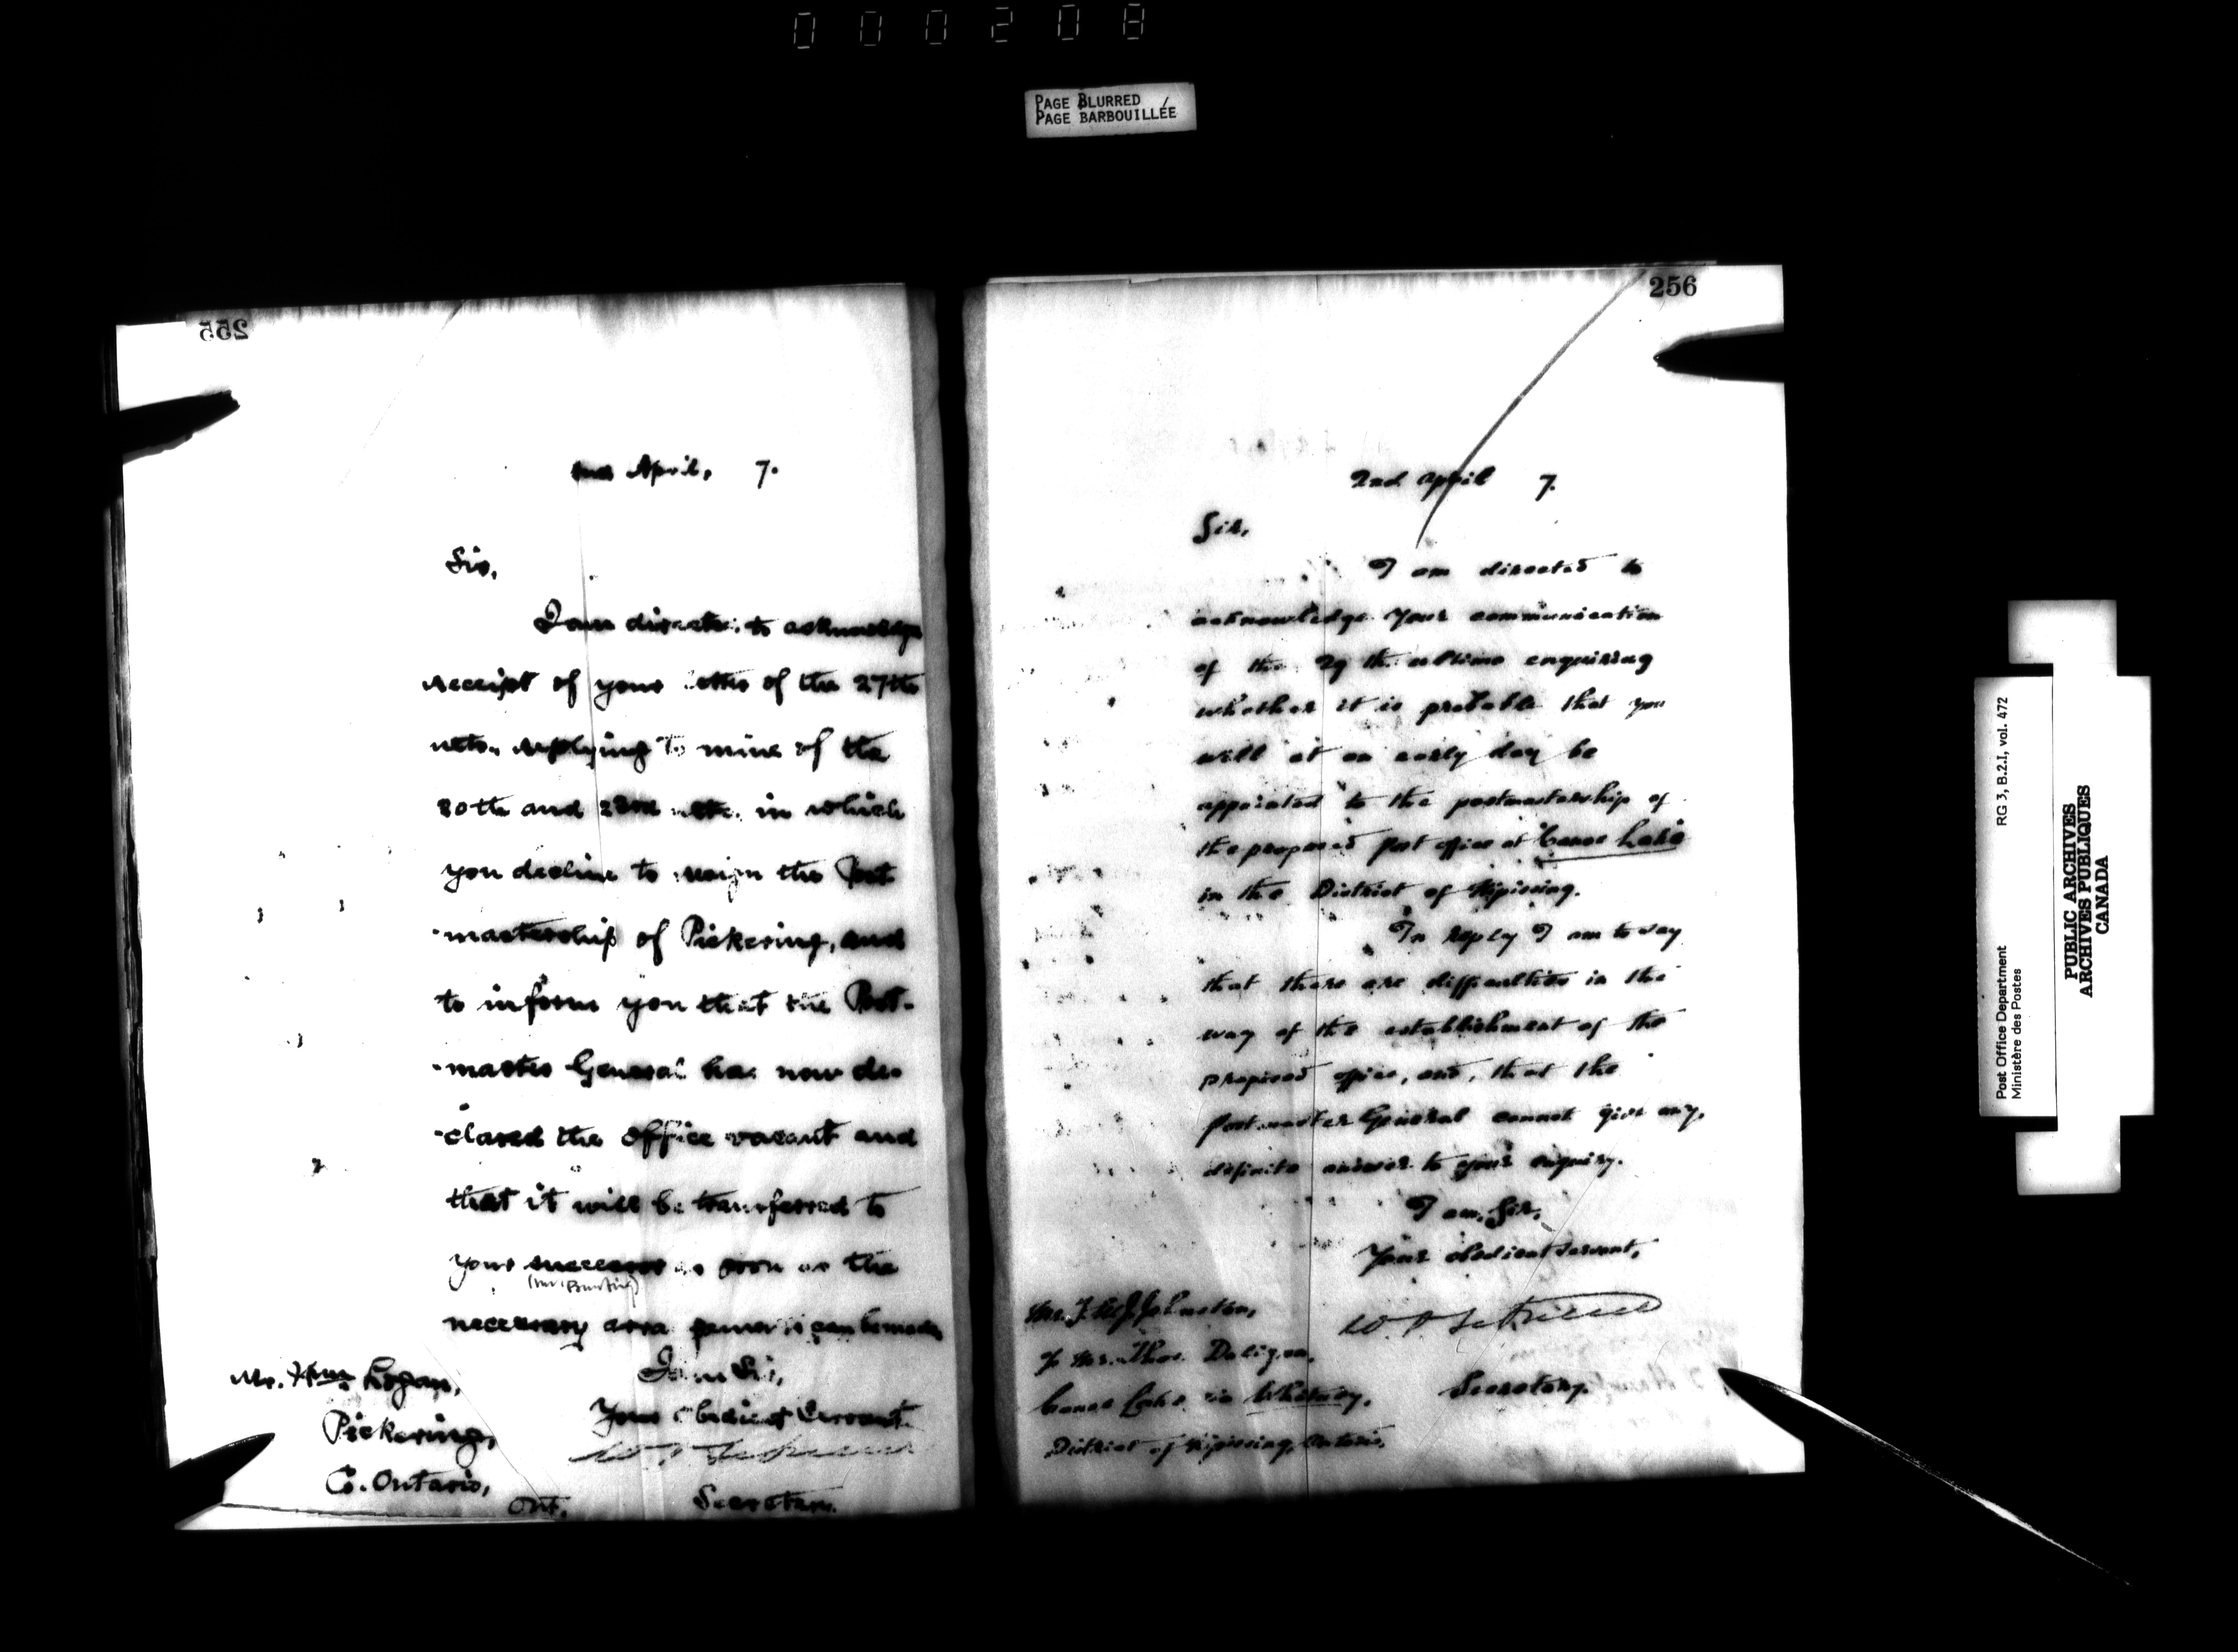 000208
PAGE BLURRED
PAGE BARBOUILLÉE
255
April, 7.
Sir,
I am directed to acknowledge
receipt of your letter of the 27th
ulto. replying to mine of the
and in which
you decline to resign the Post
-mastership of Pickering, and
to inform you that the Post-
-master General has now de-
-clared the office vacant and
that it will be transferred to
your successor as soon as the
(Mr Bunting)
necessary arrangements can be made
I am Sir,
Your Obedient Servant
Secretary.
Mr. Logan,
Pickering,
Co. Ontario,
Ont.
256
2nd April 7.
Sir,
I am directed to
acknowledge your communication
of the 29th ultimo enquiring
whether it is probable that you
will at an early day be
appointed to the postmastership of
the proposed Post office at Canoe Lake
in the District of Nipissing.
In reply I am to say
that there are difficulties in the
way of the establishment of the
proposed office, and, that the
Postmaster General cannot give any
definite answer to your enquiry.
I am, Sir,
Your obedient servant,
Secretary.
Mr. Johnston,
Mr. Thos.
Canoe Lake via Whitney,
District of Nipissing, Ontario.
Post Office Department RG 3, B.2.I, vol. 472
Ministère des Postes
PUBLIC ARCHIVES
ARCHIVES PUBLIQUES
CANADA